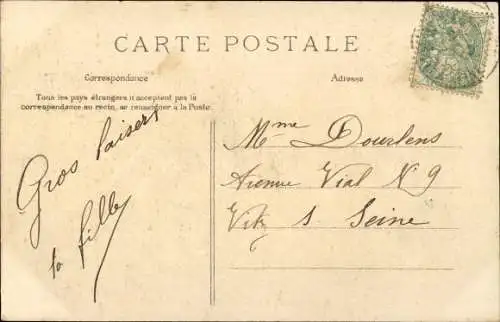 CARTE POSTALE
Correspondance
Adresse
Tous les pays étrangers n'acceptent pas la
correspondance au recto, se renseigner à la Poste.
Gros baisers
ta fille
Mme Dourlens
Avenue Vial N 9
Vity s Seine